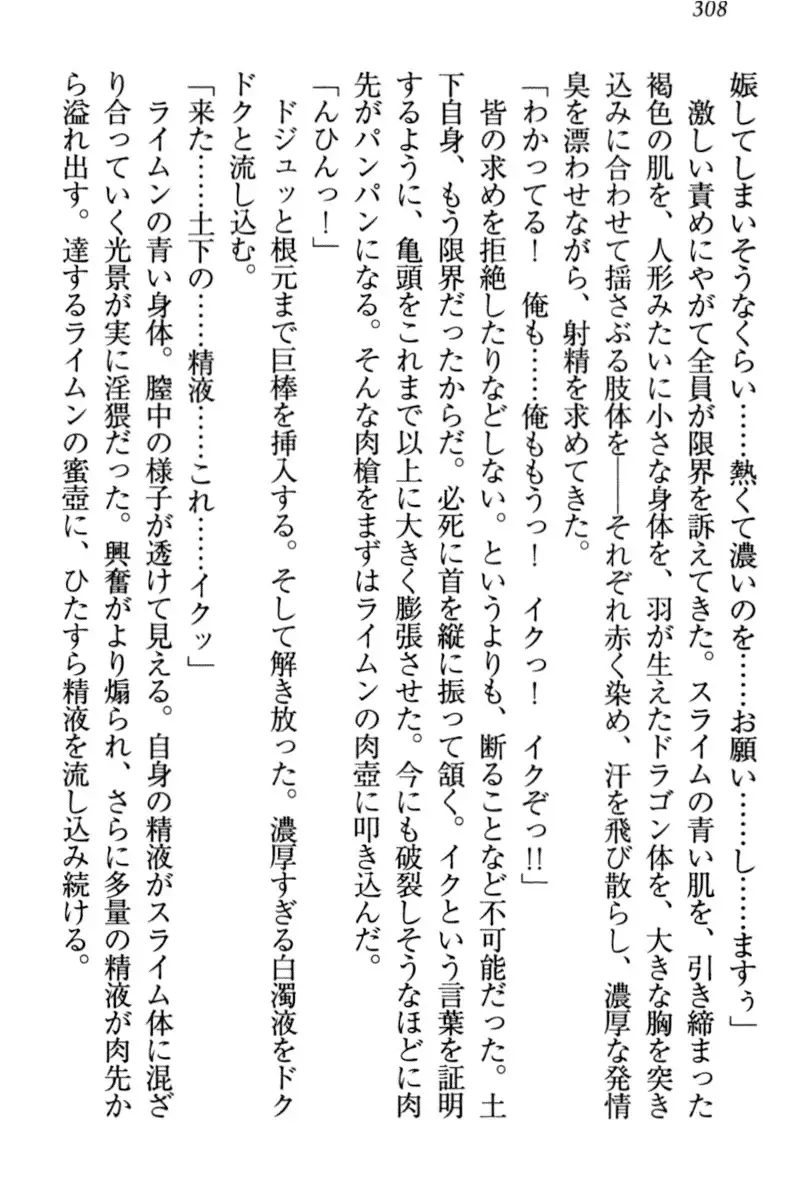 308
娠してしまいそうなくらい……熱くて濃いのを……お願い……し……ますぅ」
　激しい責めにやがて全員が限界を訴えてきた。スライムの青い肌を、引き締まった
褐色の肌を、人形みたいに小さな身体を、羽が生えたドラゴン体を、大きな胸を突き
込みに合わせて揺さぶる肢体を――それぞれ赤く染め、汗を飛び散らし、濃厚な発情
臭を漂わせながら、射精を求めてきた。
「わかってる！　俺も……俺ももうっ！　イクっ！　イクぞっ!!」
　皆の求めを拒絶したりなどしない。というよりも、断ることなど不可能だった。土
下自身、もう限界だったからだ。必死に首を縦に振って頷く。イクという言葉を証明
するように、亀頭をこれまで以上に大きく膨張させた。今にも破裂しそうなほどに肉
先がパンパンになる。そんな肉槍をまずはライムンの肉壺に叩き込んだ。
「んひんっ！」
　ドジュッと根元まで巨棒を挿入する。そして解き放った。濃厚すぎる白濁液をドク
ドクと流し込む。
「来た……土下の……精液……これ……イクッ」
　ライムンの青い身体。膣中の様子が透けて見える。自身の精液がスライム体に混ざ
り合っていく光景が実に淫猥だった。興奮がより煽られ、さらに多量の精液が肉先か
ら溢れ出す。達するライムンの蜜壺に、ひたすら精液を流し込み続ける。